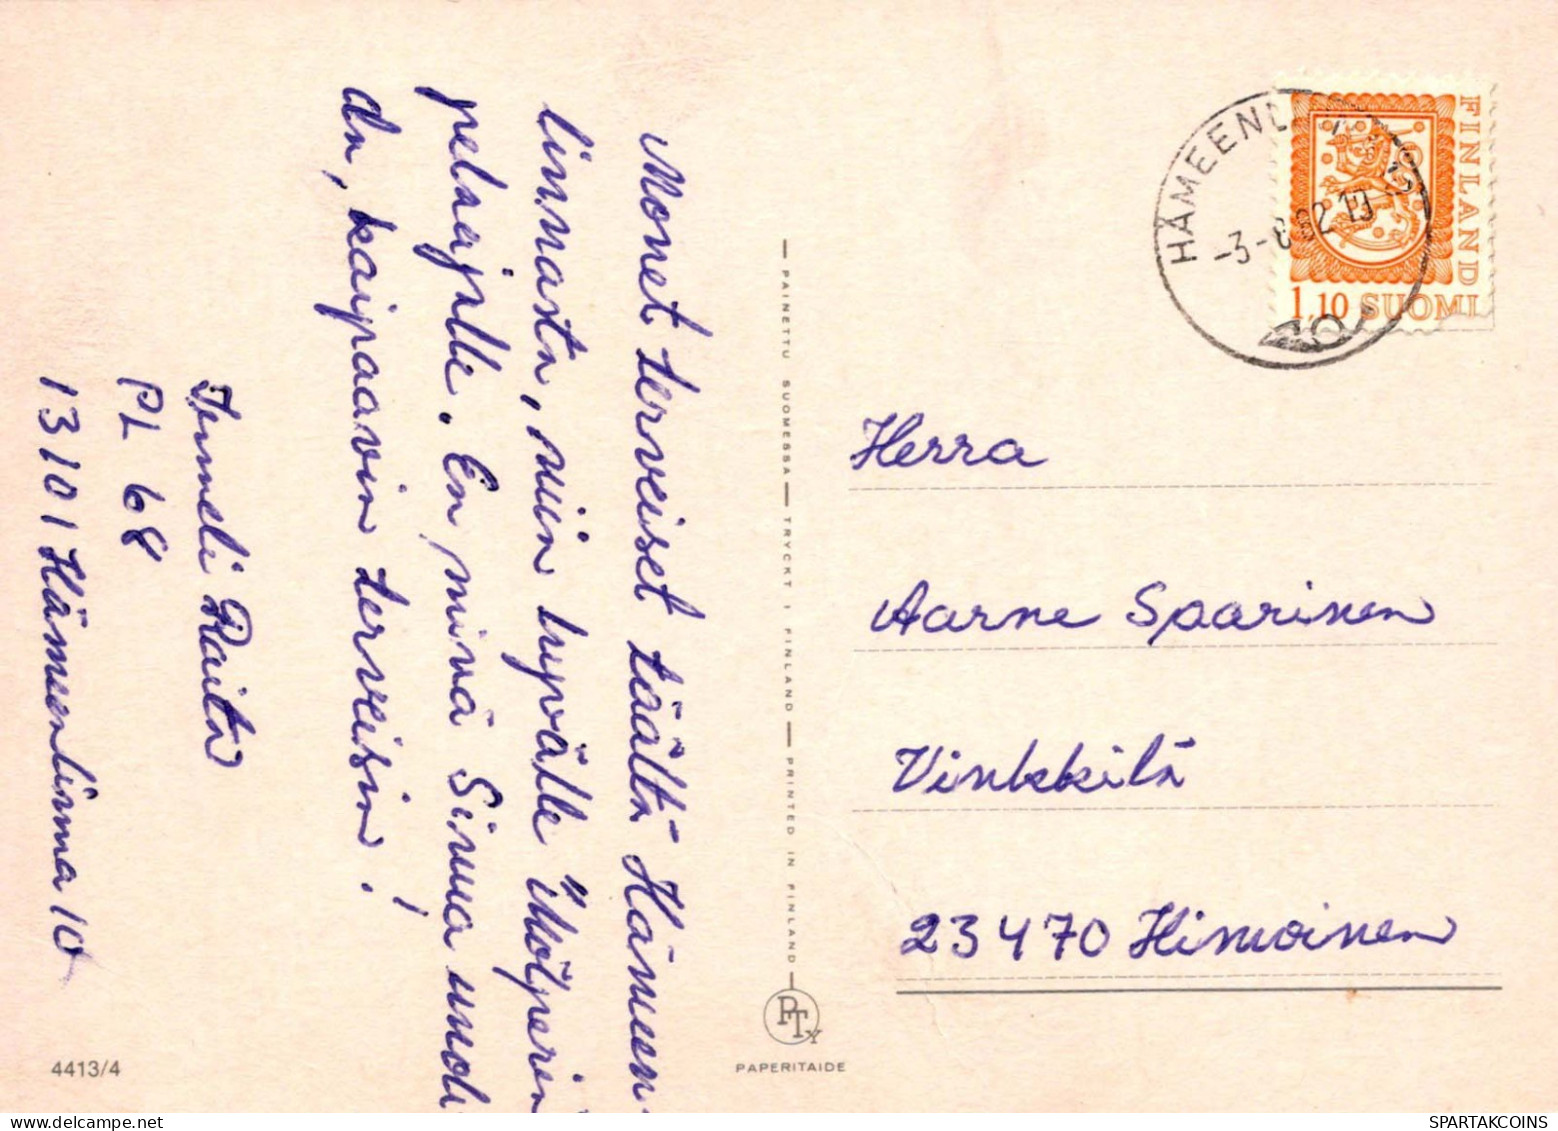 Monet terveiset täältä Hämeen-
linnasta, niin hyvälle
pelaajalle. En minä Sinua unoh
da, kaipaavin terveisin!
Raita
PL 68
13101 Hämeenlinna 10
4413/4
PAINETTU SUOMESSA — TRYCKT I FINLAND — PRINTED IN FINLAND
PTy
PAPERITAIDE
HÄMEENL
-3-8.82.19
FINLAND
1,10 SUOMI
Herra
Aarne Sparinen
Vinkkilä
23470 Hinnoinen
SPARTAKCOINS